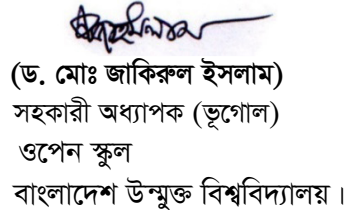 (ড. মোঃ জাকিরুল ইসলাম)
সহকারী অধ্যাপক (ভূগোল)
ওপেন স্কুল
বাংলাদেশ উন্মুক্ত বিশ্ববিদ্যালয়।